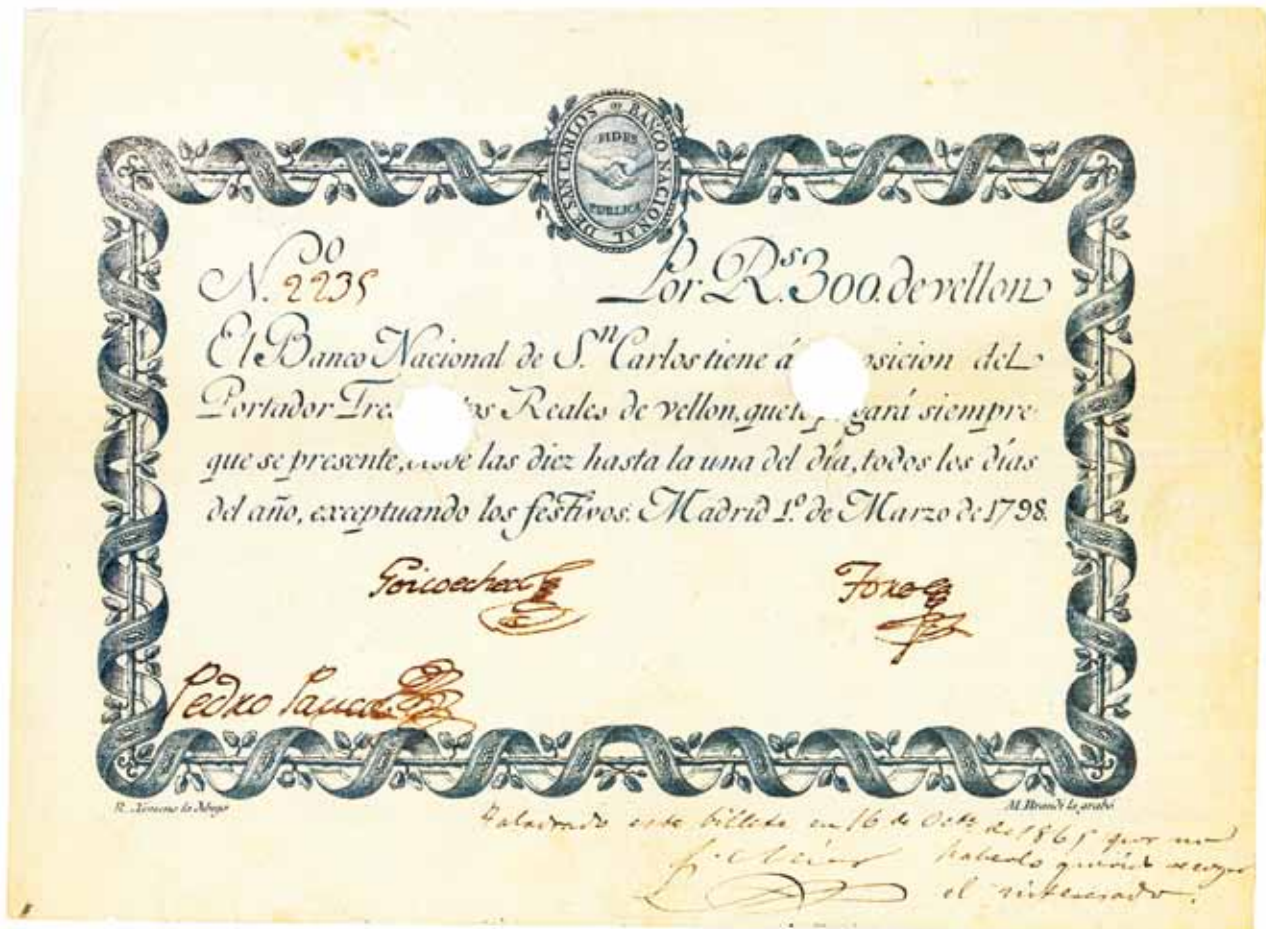 DE SAN CARLOS BANCO NACIONAL
FIDES
PUBLICA
N.º 2235 Por R.s 300. de vellon
El Banco Nacional de S.n Carlos tiene á osicion del
Portador Tre os Reales de vellon, que lo gará siempre
que se presente, las diez hasta la una del día, todos los días
del año, exceptuando los festivos. Madrid 1.º de Marzo de 1798.
Goicoechea
Pedro
R. Ximeno lo dibujo M. Brandi lo grabó
Taladrado este billete en 16 de Oct.e de 1865 por no
haberlo querido recoger
el interesado.